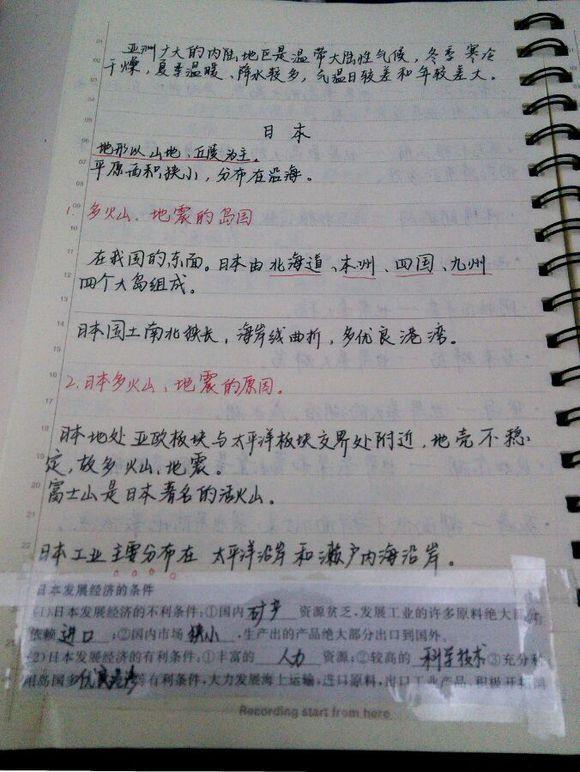 亚洲广大的内陆地区是温带大陆性气候，冬季寒冷
干燥，夏季温暖、降水较多，气温日较差和年较差大。
日本
地形以山地、丘陵为主。
平原面积狭小，分布在沿海。
1. 多火山、地震的岛国
在我国的东面。日本由北海道、本州、四国、九州
四个大岛组成。
日本国土南北狭长，海岸线曲折，多优良港湾。
2.日本多火山、地震的原因。
日本地处亚欧板块与太平洋板块交界处附近，地壳不稳
定，故多火山、地震。
富士山是日本著名的活火山。
日本工业主要分布在太平洋沿岸和濑户内海沿岸。
日本发展经济的条件
(1)日本发展经济的不利条件：①国内矿产资源贫乏，发展工业的许多原料绝大部分
依赖进口；②国内市场狭小，生产出的产品绝大部分出口到国外。
(2)日本发展经济的有利条件：①丰富的人力资源；②较高的科学技术③充分利
用岛国多优良港湾等有利条件，大力发展海上运输，进口原料，出口工业产品，积极开拓国
Recording start from here